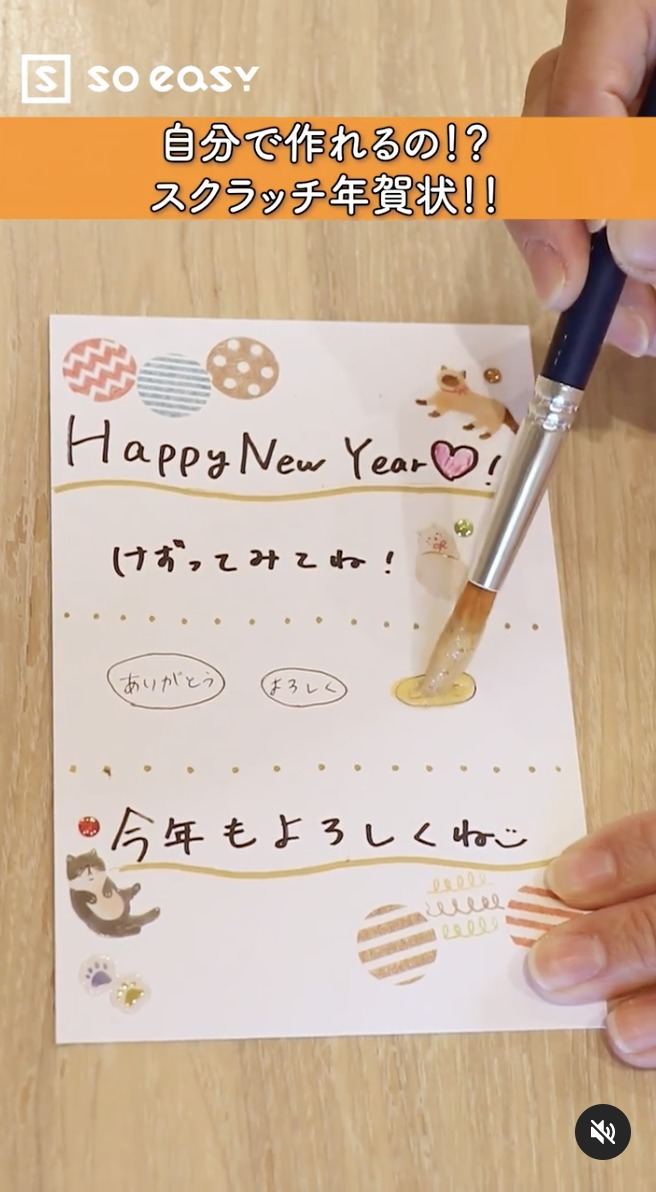 S so easy
自分で作れるの!?
スクラッチ年賀状!!
Happy New Year!
けずってみてね!
ありがとう よろしく
今年もよろしくね